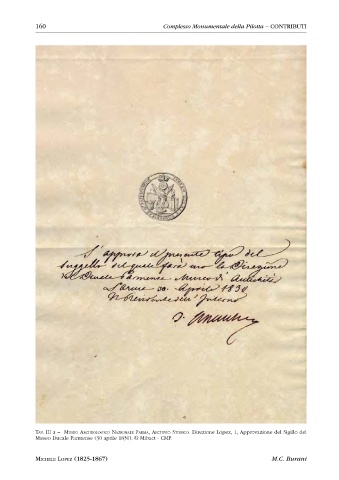 160 Complesso Monumentale della Pilotta – CONTRIBUTI
S'approva il presente tipo del
Suggello del quale farà uso la Direzione
del Ducale Parmense Museo d'Antichità
Parma 30. Aprile 1830
Il Presidente dell' Interno
Tav. III a – Museo Archeologico Nazionale Parma, Archivio Storico. Direzione Lopez, 1, Approvazione del Sigillo del
Museo Ducale Parmense (30 aprile 1830). © Mibact - CMP.
Michele Lopez (1825-1867) M.C. Burani